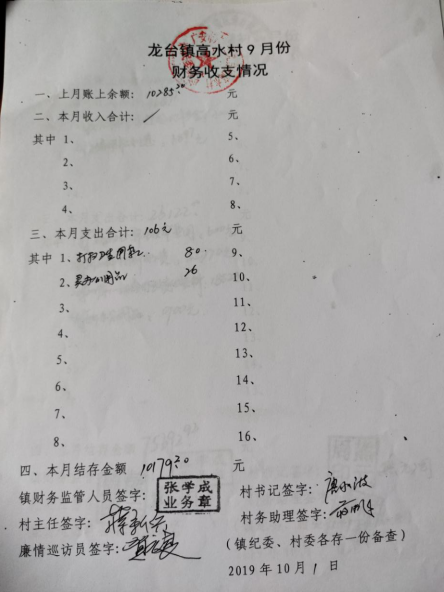 龙台镇高水村9月份
财务收支情况
一、上月账上余额：10285.20 元
二、本月收入合计：/ 元
其中 1、 5、
2、 6、
3、 7、
4、 8、
三、本月支出合计：106元 元
其中 1、打扫卫生用工 80. 9、
2、办公用品 26 10、
3、 11、
4、 12、
5、 13、
6、 14、
7、 15、
8、 16、
四、本月结存金额 10179.20 元
镇财务监管人员签字： 张学成 业务章 村书记签字：
村主任签字： 村务助理签字：
廉情巡访员签字： （镇纪委、村委各存一份备查）
2019年10月1日